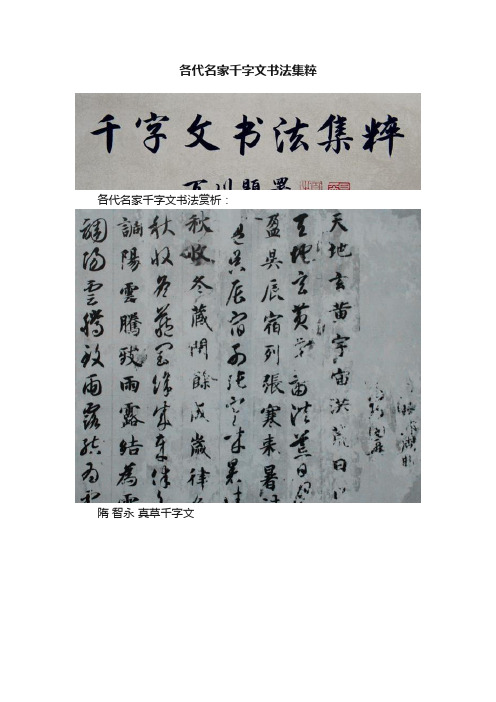 各代名家千字文书法集粹
千字文书法集粹
各代名家千字文书法赏析：
天地玄黄宇宙洪荒日
天地玄黄宇宙洪荒日
盈昃辰宿列張寒来暑
盈昃辰宿列張寒来暑
秋收冬藏閏餘成歲律
秋收冬藏閏餘成歲律
調陽雲騰致雨露結為
調陽雲騰致雨露結為
隋 智永 真草千字文